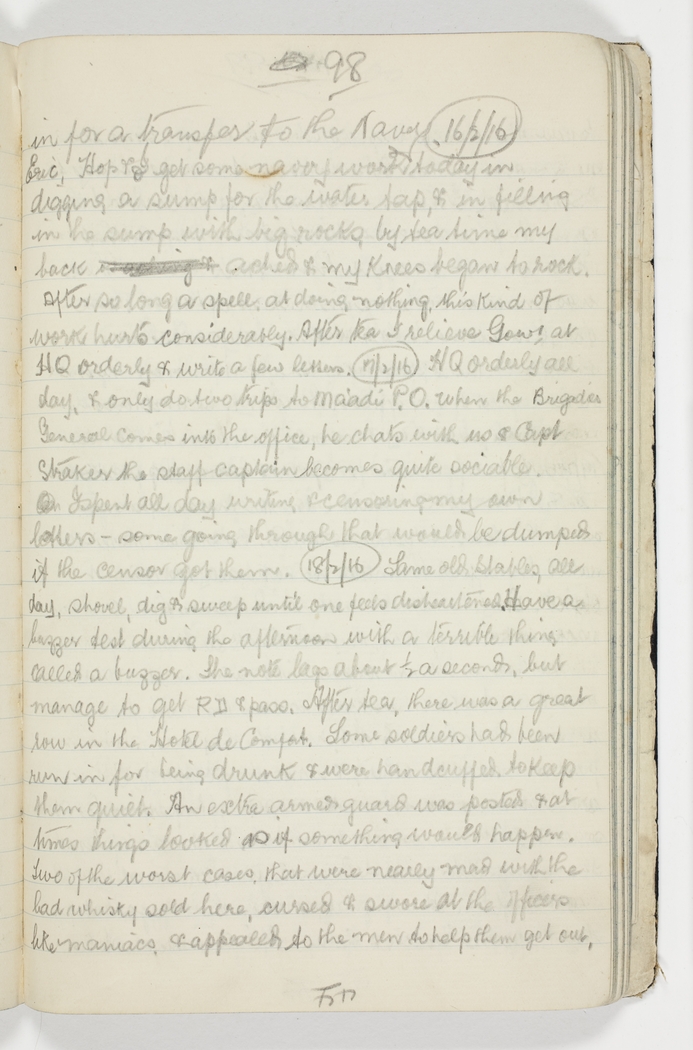 98
in for a transfer to the Navy. 16/2/16
Eric, Hop & I get some navvy work today in
digging a sump for the water tap, & in filling
in the sump with big rocks, by tea time my
back ached & my knees began to rock.
After so long a spell, at doing nothing, this kind of
work hurts considerably. After tea I relieve Gow, at
HQ orderly & write a few letters. 17/2/16 HQ orderly all
day, & only do two trips to Maadi P.O. When the Brigadier
General comes into the office, he chats with us & Capt
Straker the staff captain becomes quite sociable.
I spent all day writing & censoring my own
letters - some going through that would be dumped
if the censor got them. 18/2/16 Same old Stables, all
day, shovel, dig & sweep until one feels disheartened. Have a
buzzer test during the afternoon with a terrible thing
called a buzzer. The note lags about ½ a seconds, but
manage to get RD & pass. After tea, there was a great
row in the Hotel de Comfort. Some soldiers had been
run in for being drunk & were handcuffed to keep
them quiet. An extra armed guard was posted & at
times things looked as if something would happen.
Two of the worst cases, that were nearly mad with the
bad whisky sold here, cursed & swore at the officers
like maniacs, & appealed to the men to help them get out,